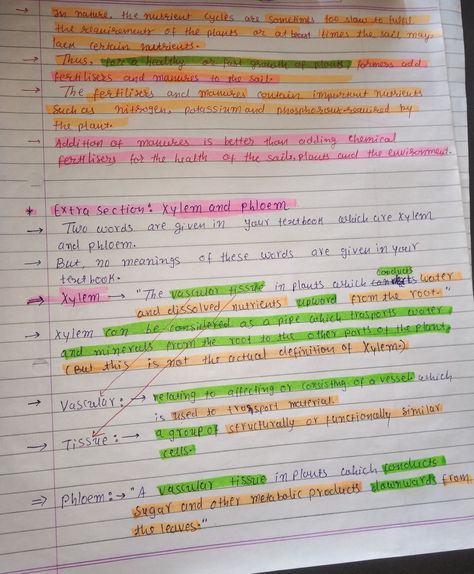 → In nature, the nutrient cycles are sometimes too slow to fulfil
the requirement of the plants or at least times the soil may
lack certain nutrients.
→ Thus, for a healthy or fast growth of plants farmers add
fertilisers and manures to the soil.
→ The fertilisers and manures contain important nutrients
such as nitrogen, potassium and phosphorous required by
the plant.
→ Addition of manures is better than adding chemical
fertilisers for the health of the soil, plants and the environment.
* Extra Section: Xylem and Phloem
→ Two words are given in your textbook which are Xylem
and phloem.
→ But, no meanings of these words are given in your
textbook.
conducts
⇒ Xylem → "The vascular tissue in plants which water
and dissolved nutrients upward from the root."
→ Xylem can be considered as a pipe which trasports water
and minerals from the root to the other parts of the plant.
(But this is not the actual definition of Xylem.)
→ Vascular: → relating to affecting or consisting of a vessel which
is used to transport material.
→ Tissue: → a group of structurally or functionally similar
cells.
⇒ Phloem: → "A vascular tissue in plants which conducts
sugar and other metabolic products downwards from
the leaves."